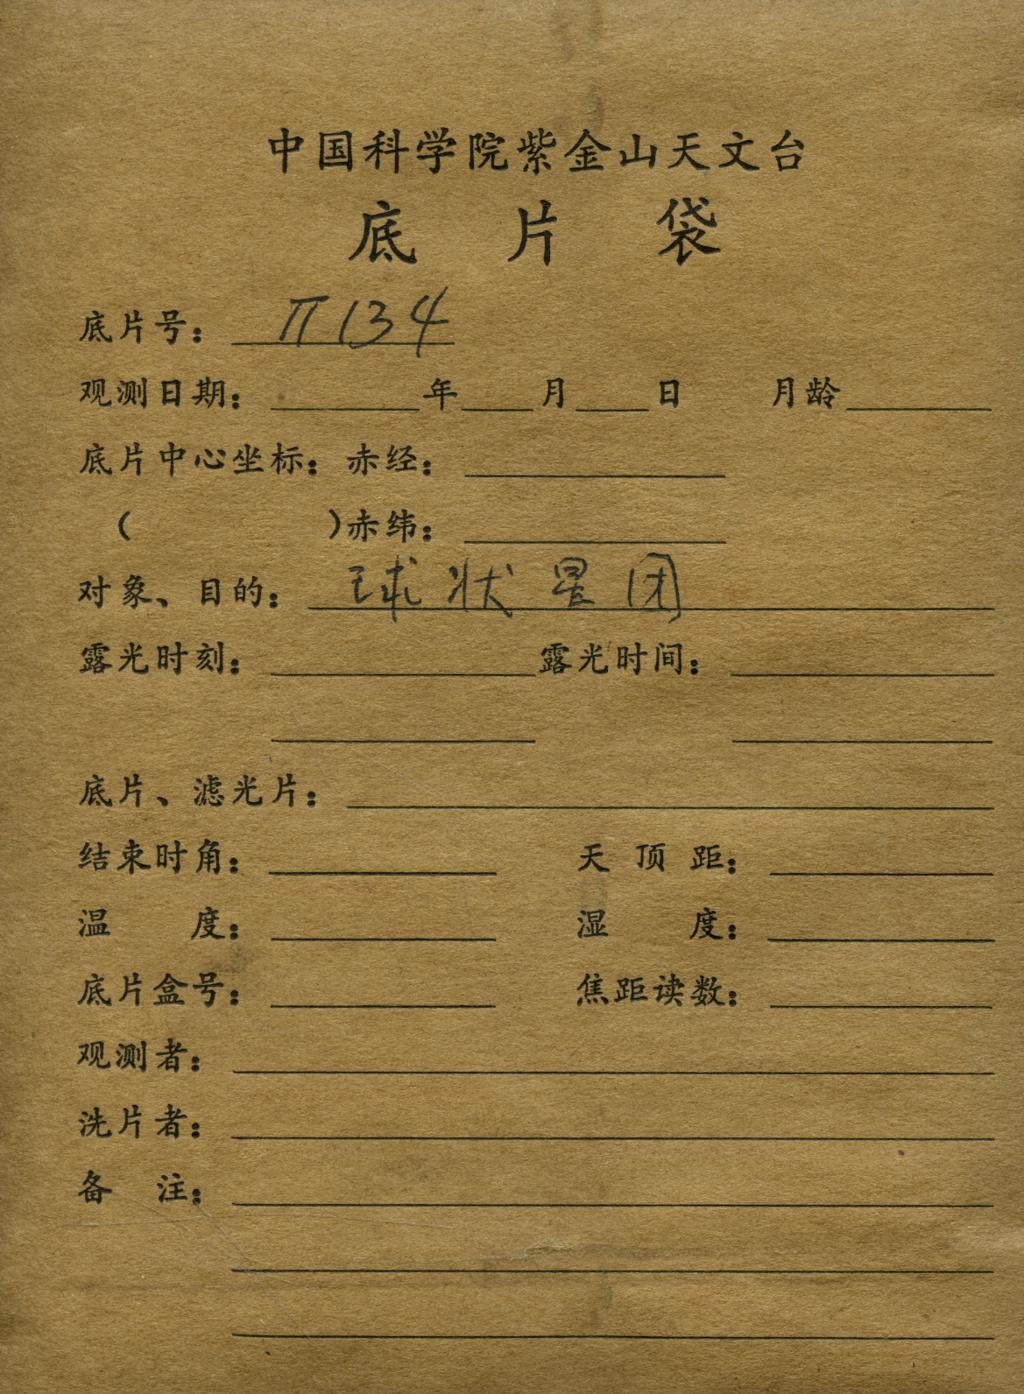 中国科学院紫金山天文台
底片袋
底片号：π134
观测日期：年 月 日 月龄
底片中心坐标：赤经：
（ ）赤纬：
对象、目的：球状星团
露光时刻： 露光时间：
底片、滤光片：
结束时角： 天顶距：
温度： 湿度：
底片盒号： 焦距读数：
观测者：
洗片者：
备注：